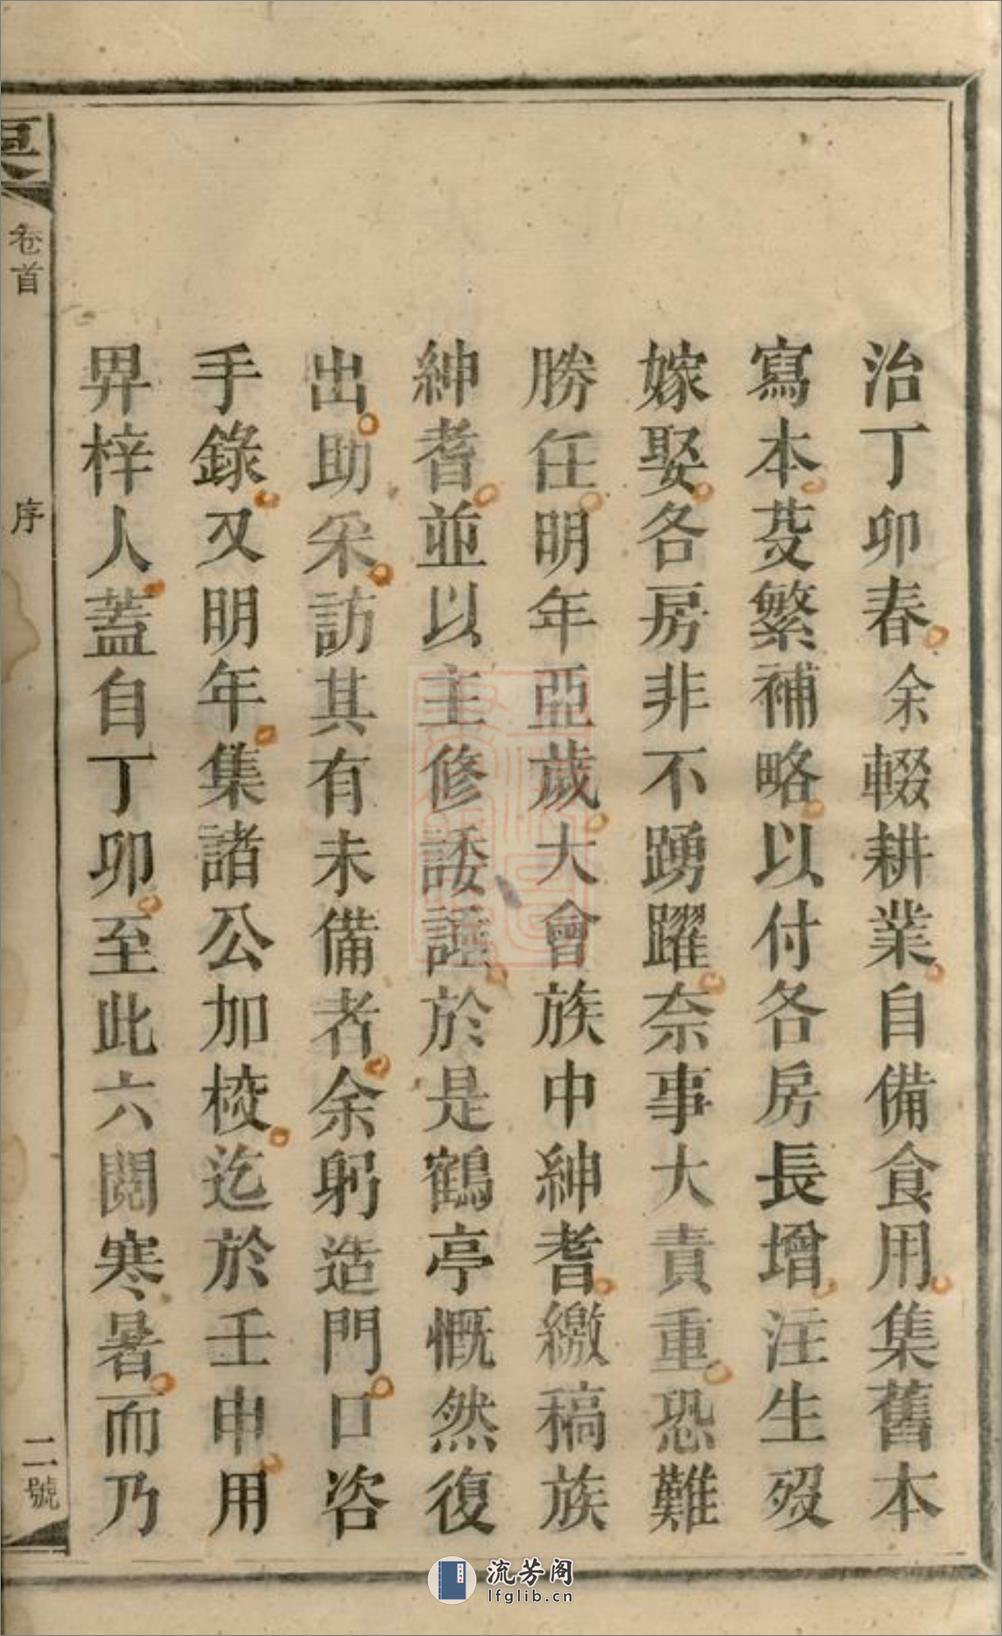 治丁卯春余輟耕業自備食用集舊本
寫本芟繁補略以付各房長增注生歿
嫁娶各房非不踴躍奈事大責重恐難
勝任明年亞歲大會族中紳耆繳稿族
紳耆並以主修諉諈於是鶴亭慨然復
出助采訪其有未備者余躬造門口咨
手錄又明年集諸公加校迄於壬申用
畀梓人蓋自丁卯至此六閱寒暑而乃
卷首
序
二號
流芳阁
lfglib.cn